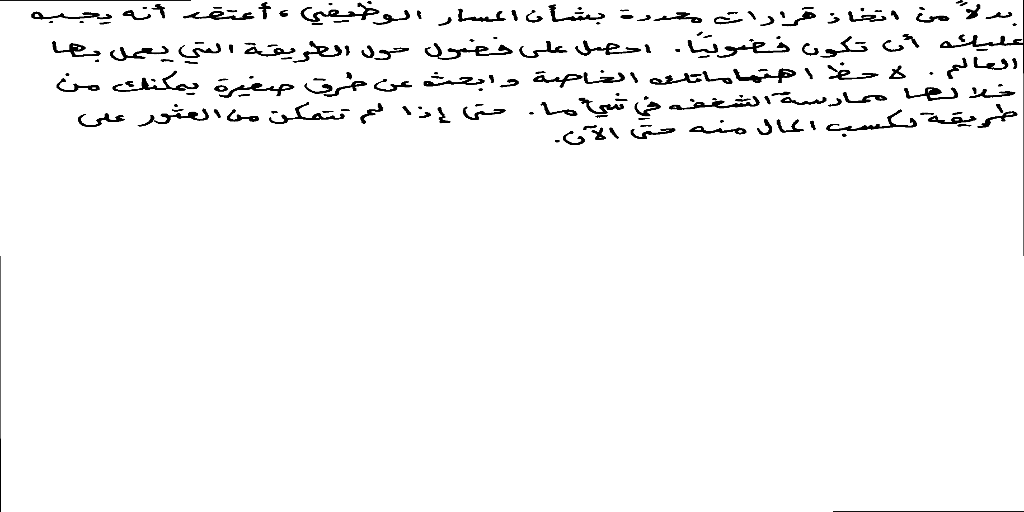 بدلاً من اتخاذ قرارات محددة بشأن المسار الوظيفي، أعتقد أنه يجب
عليك أن تكون فضوليًا. احصل على فضول حول الطريقة التي يعمل بها
العالم. لاحظ اهتماماتك الخاصة وابحث عن طرق صغيرة يمكنك من
خلالها ممارسة الشغف في شيء ما. حتى إذا لم تتمكن من العثور على
طريقة لكسب المال منه حتى الآن.